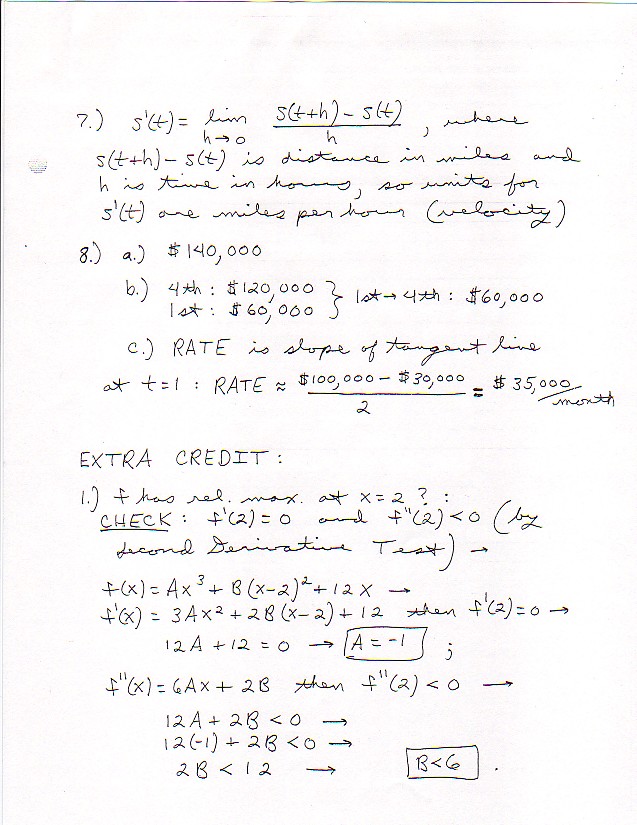 7.) s'(t) = lim h→0 (s(t+h) - s(t))/h , where
s(t+h) - s(t) is distance in miles and
h is time in hours, so units for
s'(t) are miles per hour (velocity)
8.) a.) $140,000
b.) 4th : $120,000 } 1st → 4th : $60,000
1st : $60,000
c.) RATE is slope of tangent line
at t=1 : RATE ≈ ($100,000 - $30,000)/2 = $35,000/month
EXTRA CREDIT :
1.) f has rel. max. at x = 2 ? :
CHECK : f'(2) = 0 and f''(2) < 0 (by
Second Derivative Test) →
f(x) = Ax³ + B(x-2)² + 12x →
f'(x) = 3Ax² + 2B(x-2) + 12 then f'(2) = 0 →
12A + 12 = 0 → A = -1 ;
f''(x) = 6Ax + 2B then f''(2) < 0 →
12A + 2B < 0 →
12(-1) + 2B < 0 →
2B < 12 → B < 6 .